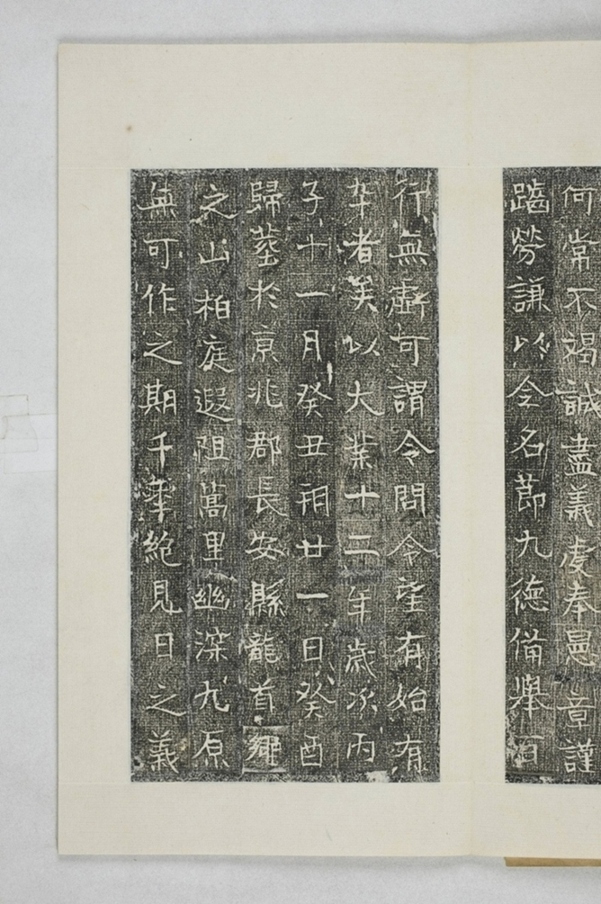 何常不竭誠盡義虔奉愚章謹
蹈勞謙以令名節九德備舉百
行無虧可謂令問令望有始有
卒者矣以大業十二年歲次丙
子十一月癸丑朔廿一日癸酉
歸葬於京兆郡長安縣龍首鄉
之山柏庭遐阻萬里幽深九原
無可作之期千年絶見日之義